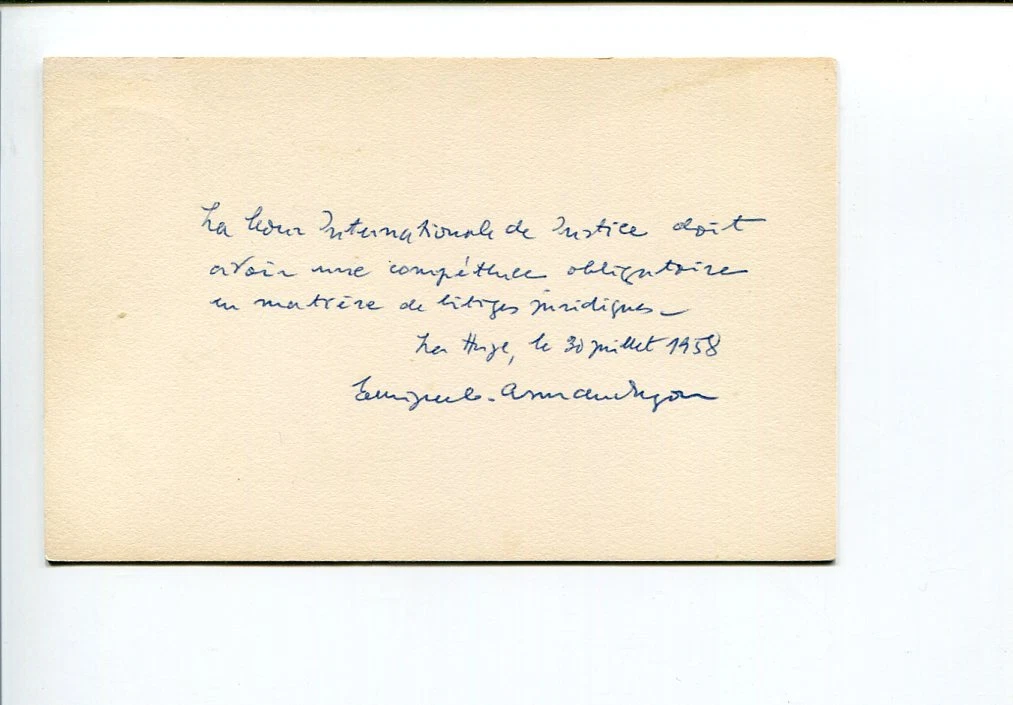 La Cour Internationale de Justice doit
avoir une compétence obligatoire
en matière de litiges juridiques_
La Haye, le 30 juillet 1958
Enrique C. Armand Ugon